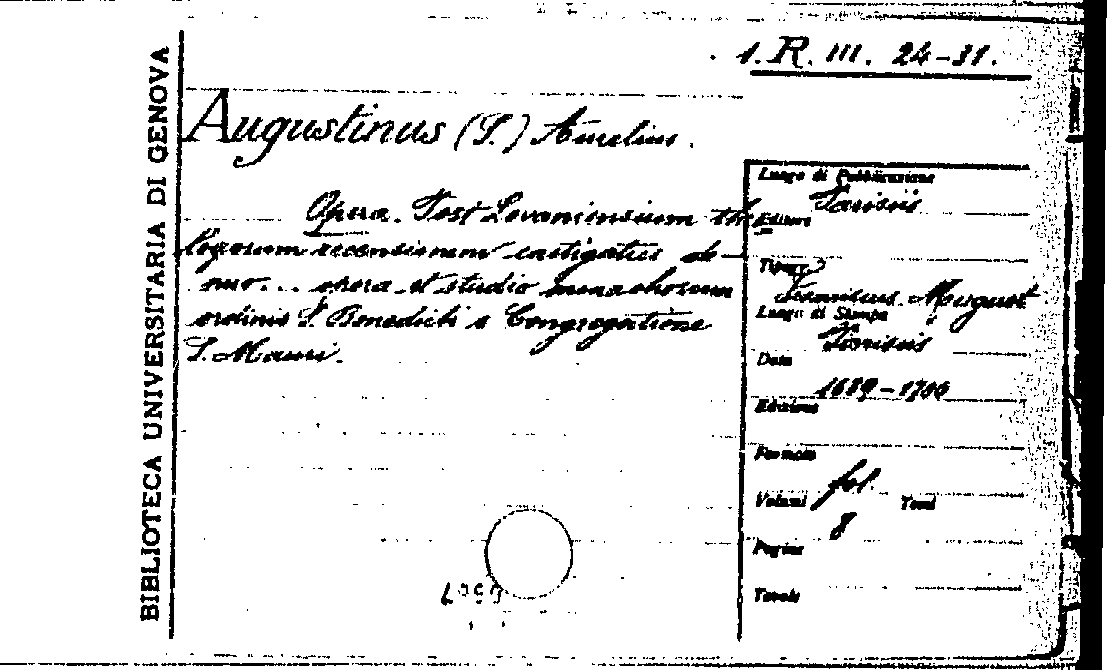 1. R. III. 24-31.
BIBLIOTECA UNIVERSITARIA DI GENOVA
Augustinus (S.) Aurelius.
Opera. Post Lovaniensium theo
logorum recensionem castigatus de-
nuo... opera et studio monachorum
ordinis S. Benedicti e Congregatione
S. Mauri.
Luogo di Pubblicazione
Parisiis
Editore
Tipogr.
Franciscus Muguet
Luogo di Stampa
Parisiis
Data
1689-1700
Edizione
Formato
fol.
Volumi Tomi
8
Pagine
Tavole